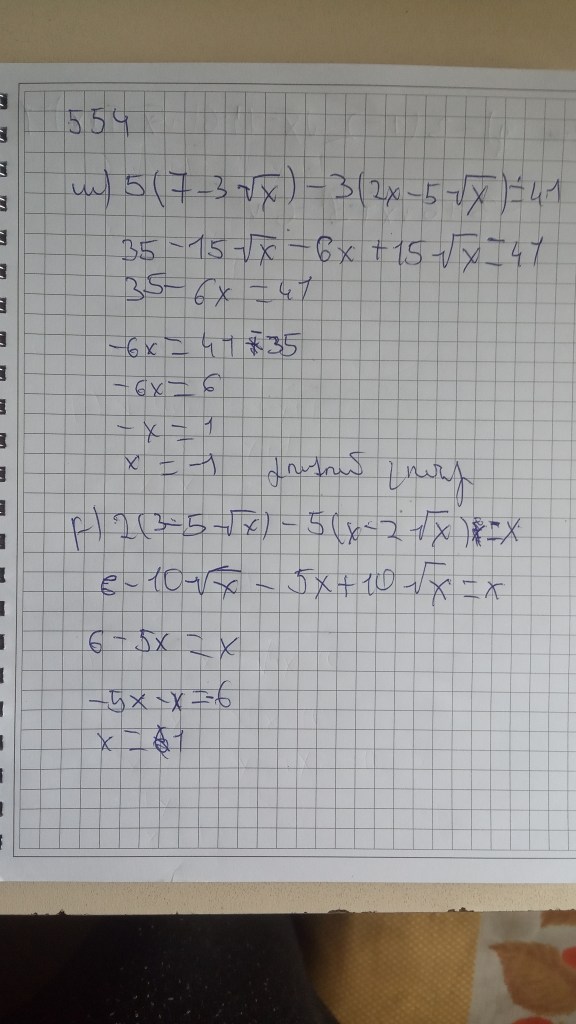 554
ա) 5(7-3√x) - 3(2x-5√x) = 41
35 - 15√x - 6x + 15√x = 41
35 - 6x = 41
-6x = 41 - 35
-6x = 6
-x = 1
x = -1
բ) 2(3-5√x) - 5(x-2√x) = x
6 - 10√x - 5x + 10√x = x
6 - 5x = x
-5x - x = -6
x = 1